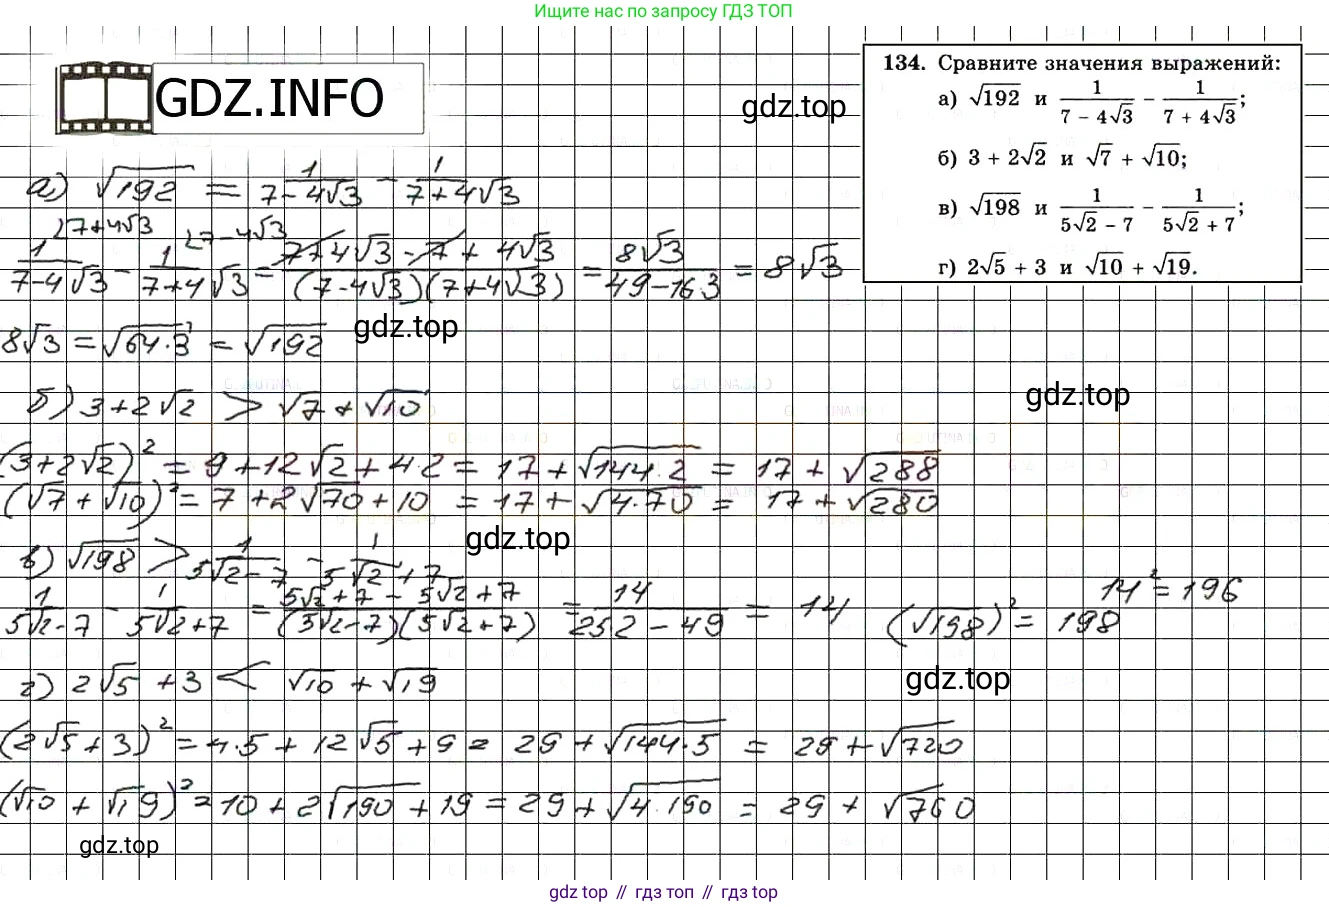 Ищите нас по запросу ГДЗ ТОП
GDZ.INFO
gdz.top
134. Сравните значения выражений:
а) √192 и 1/(7 − 4√3) − 1/(7 + 4√3);
б) 3 + 2√2 и √7 + √10;
в) √198 и 1/(5√2 − 7) − 1/(5√2 + 7);
г) 2√5 + 3 и √10 + √19.
а) √192 = 1/(7−4√3) − 1/(7+4√3)
1/(7−4√3) ∠7+4√3 − 1/(7+4√3) ∠7−4√3 = (7+4√3 − 7 + 4√3)/((7−4√3)(7+4√3)) = 8√3/(49−16·3) = 8√3
8√3 = √64·3 = √192
gdz.top
б) 3+2√2 > √7 + √10
gdz.top
(3+2√2)² = 9+12√2+4·2 = 17+√144·2 = 17+√288
(√7+√10)² = 7+2√70+10 = 17+√4·70 = 17+√280
gdz.top
в) √198 > 1/(5√2−7) − 1/(5√2+7)
1/(5√2−7) − 1/(5√2+7) = (5√2+7 − 5√2+7)/((5√2−7)(5√2+7)) = 14/(25·2−49) = 14 (√198)² = 198 14² = 196
г) 2√5 + 3 < √10 + √19
gdz.top
(2√5+3)² = 4·5 + 12√5 + 9 = 29 + √144·5 = 29+√720
(√10 + √19)² = 10+2√190+19 = 29+√4·190 = 29 + √760
gdz.top
gdz top // гдз топ // gdz top